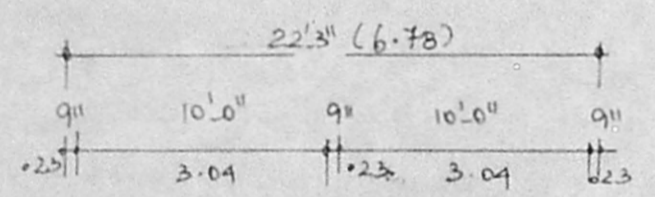 22'3" (6.78)
9" 10'-0" 9" 10'-0" 9"
.23 3.04 .23 3.04 .23